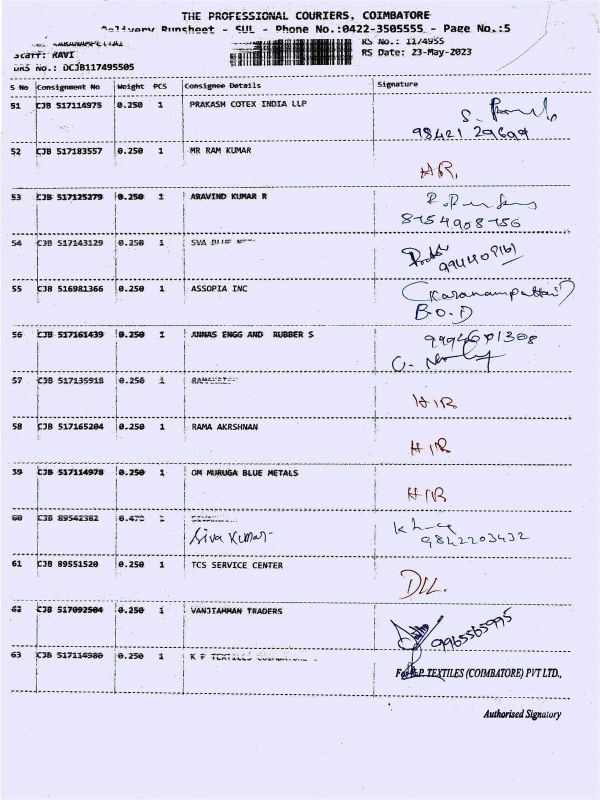 THE PROFESSIONAL COURIERS, COIMBATORE
Delivery Runsheet - SUL - Phone No.:0422-3505555 - Page No.:5
KARANAMPETTAI RS No.: 1174955
Staff: RAVI RS Date: 23-May-2023
DRS No.: DCJB117495505
S No Consignment No Weight PCS Consignee Details Signature
51 CJB 517114975 0.250 1 PRAKASH COTEX INDIA LLP
98421 29697
52 CJB 517183557 0.250 1 MR RAM KUMAR
HR,
53 CJB 517125279 0.250 1 ARAVIND KUMAR R
8754908756
54 CJB 517143129 0.250 1 SVA BLUE
55 CJB 516981366 0.250 1 ASSOPIA INC (Karanampattai)
B.O.D
56 CJB 517161439 0.250 1 ANNAS ENGG AND RUBBER S
57 CJB 517135918 0.250 1
H/R
58 CJB 517165204 0.250 1 RAMA AKRSHNAN
H/R
59 CJB 517114978 0.250 1 OM MURUGA BLUE METALS
H/R
60 CJB 89542382 0.470 1
Siva Kumar
9842203432
61 CJB 89551520 0.250 1 TCS SERVICE CENTER
D/L.
62 CJB 517092504 0.250 1 VANJIAMMAN TRADERS
9965565995
63 CJB 517114980 0.250 1 K P TEXTILES COIMBATORE
For K.P. TEXTILES (COIMBATORE) PVT LTD.,
Authorised Signatory